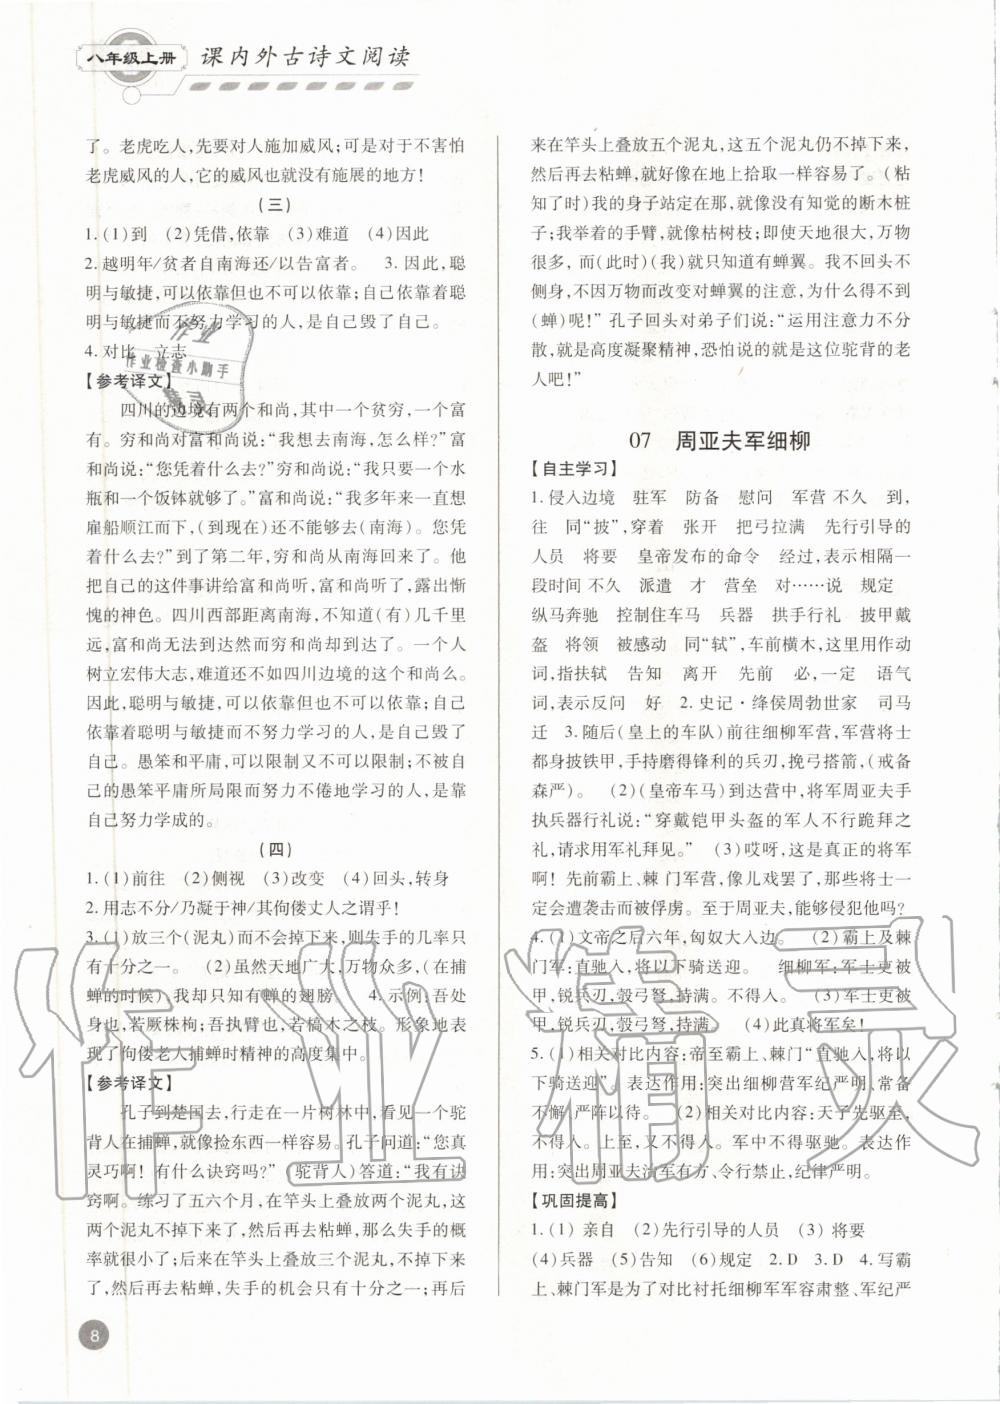 八年级上册
课内外古诗文阅读
了。老虎吃人,先要对人施加威风;可是对于不害怕
老虎威风的人,它的威风也没有施展的地方!
(三)
1.(1)到　(2)凭借,依靠　(3)难道　(4)因此
2.越明年/贫者自南海还/以告富者。　3.因此,聪
明与敏捷,可以依靠但也不可以依靠;自己依靠着聪
明与敏捷而不努力学习的人,是自己毁了自己。
4.对比　立志
【参考译文】
四川的边境有两个和尚,其中一个贫穷,一个富
有。穷和尚对富和尚说:“我想去南海,怎么样?”富
和尚说:“您凭着什么去?”穷和尚说:“我只要一个水
瓶和一个饭钵就够了。”富和尚说:“我多年来一直想
雇船顺江而下,(到现在)还不能够去(南海)。您凭
着什么去?”到了第二年,穷和尚从南海回来了。他
把自己的这件事讲给富和尚听,富和尚听了,露出惭
愧的神色。四川西部距离南海,不知道(有)几千里
远,富和尚无法到达然而穷和尚却到达了。一个人
树立宏伟大志,难道还不如四川边境的这个和尚么。
因此,聪明与敏捷,可以依靠但也不可以依靠;自己
依靠着聪明与敏捷而不努力学习的人,是自己毁了
自己。愚笨和平庸,可以限制又不可以限制;不被自
己的愚笨平庸所局限而努力不倦地学习的人,是靠
自己努力学成的。
(四)
1.(1)前往　(2)侧视　(3)改变　(4)回头,转身
2.用志不分/乃凝于神/其佝偻丈人之谓乎!
3.(1)放三个(泥丸)而不会掉下来,则失手的几率只
有十分之一。　(2)虽然天地广大,万物众多,(在捕
蝉的时候),我却只知有蝉的翅膀　　4.示例:吾处
身也,若厥株枸;吾执臂也,若槁木之枝。形象地表
现了佝偻老人捕蝉时精神的高度集中。
【参考译文】
孔子到楚国去,行走在一片树林中,看见一个驼
背人在捕蝉,就像捡东西一样容易。孔子问道:“您真
灵巧啊!有什么诀窍吗?”(驼背人)答道:“我有诀
窍啊。练习了五六个月,在竿头上叠放两个泥丸,这
两个泥丸不掉下来,然后再去粘蝉,那么失手的概
率就很小了;后来在竿头上叠放三个泥丸,这三个泥
丸不掉下来,然后再去粘蝉,失手的机会只有十分之一;再后
来在竿头上叠放五个泥丸,这五个泥丸仍不掉下来,
然后再去粘蝉,就好像在地上拾取一样容易了。(粘
知了时)我的身子站定在那,就像没有知觉的断木桩
子;我举着的手臂,就像枯树枝;即使天地很大,万物
很多,而(此时)(我)就只知道有蝉翼。我不回头不
侧身,不因万物而改变对蝉翼的注意,为什么得不到
(蝉)呢!”孔子回头对弟子们说:“运用注意力不分
散,就是高度凝聚精神,恐怕说的就是这位驼背的老
人吧!”
07　周亚夫军细柳
【自主学习】
1.侵入边境　驻军　防备　慰问　军营 不久　到,
往　同“披”,穿着　张开　把弓拉满　先行引导的
人员　将要　皇帝发布的命令　经过,表示相隔一
段时间 不久　派遣　才　营垒　对……说　规定
纵马奔驰　控制住车马　兵器　拱手行礼　披甲戴
盔　将领　被感动　同“轼”,车前横木,这里用作动
词,指扶轼　告知　离开　先前　必,一定　语气
词,表示反问　好　2.史记·绛侯周勃世家　司马
迁　3.随后(皇上的车队)前往细柳军营,军营将士
都身披铁甲,手持磨得锋利的兵刃,挽弓搭箭,(戒备
森严)。　(2)(皇帝车马)到达中营,将军周亚夫手
执兵器行礼说:“穿戴铠甲头盔的军人不行跪拜之
礼,请求用军礼拜见。”　(3)哎呀,这是真正的将军
啊!先前霸上、棘门军营,像儿戏罢了,那些将士一
定会遭袭击而被俘虏。至于周亚夫,能够侵犯他吗?
4.(1)文帝之后六年,匈奴大入边。　(2)霸上及棘
门军:直驰入,将以下骑送迎。　细柳军:军士吏被
甲,锐兵刃,彀弓弩,持满。不得入。　(3)军士吏被
甲,锐兵刃,彀弓弩,持满。　　(4)此真将军矣!
5.(1)相关对比内容:帝至霸上、棘门“直驰入,将以
下骑送迎”。表达作用:突出细柳营军纪严明,常备
不懈,严阵以待。　(2)相关对比内容:天子先驱至,
不得入。上至,又不得入。军中不得驱驰。表达作
用:突出周亚夫治军有方、令行禁止,纪律严明。
【巩固提高】
1.(1)亲自　(2)先行引导的人员　(3)将要
(4)兵器　(5)告知　(6)规定　2.D　3.D　4.写霸
上、棘门军是为了对比衬托细柳军军容肃整、军纪严
8
作业
作业检查小助手
精灵
作业精灵